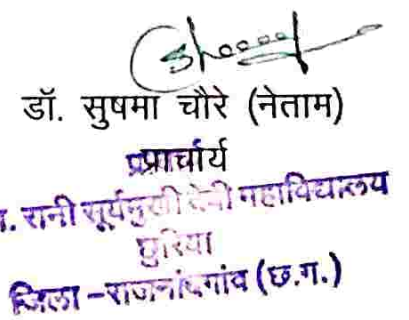 डॉ. सुषमा चौरे (नेताम)
प्राचार्य
. रानी सूर्यमुखी देवी महाविद्यालय
छुरिया
जिला -राजनांदगांव (छ.ग.)